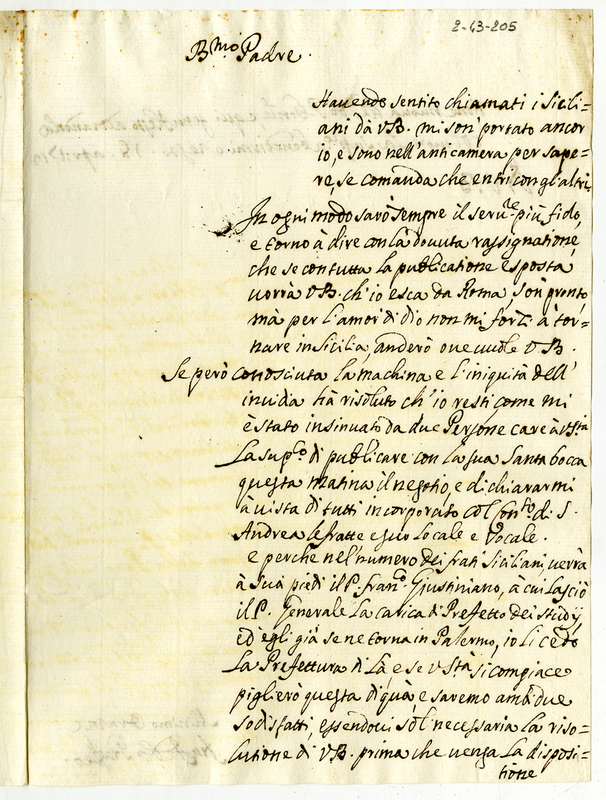 2-43-205
B.mo Padre.
Havendo sentito chiamati i Sicili=
ani dà VB. mi son' portato ancor
io, e sono nell'anticamera per sape=
re, se comanda che entri con gl'altri.
In ogni modo sarò sempre il serv.re più fido,
e torno à dire con la dovuta rassignatione,
che se con tutta la publicatione esposta
vorrà VB. ch'io esca da Roma son pronto,
mà per l'amor di dio non mi forzi à tor=
nare in Sicilia, anderò ove vuole VB.
Se però conosciuta la machina e l'iniquità dell'
invidia hà risoluto ch'io resti come mi
è stato insinuato da due Persone care à V.Stà
La sup.co di publicare con la sua Santa bocca
questa matina il negotio, e dichiararmi
à vista di tutti incorporato col Con.to di S.
Andrea le fratte e suo Locale e Vocale.
e perche nel'numero dei frati Siciliani verrà
à Suoi piedi il P. fran.co Giustiniano, à cui lasciò
il P. Generale La carica di Prefetto dei Studÿ,
ed egli già se ne torna in Palermo, io li cedo
La Prefettura di Là, e se V.Stà si compiace
piglierò questa di quà, e saremo ambidue
sodisfatti, essendovi sòl necessaria la riso=
lutione di VB. prima che venga La disposi=
tione